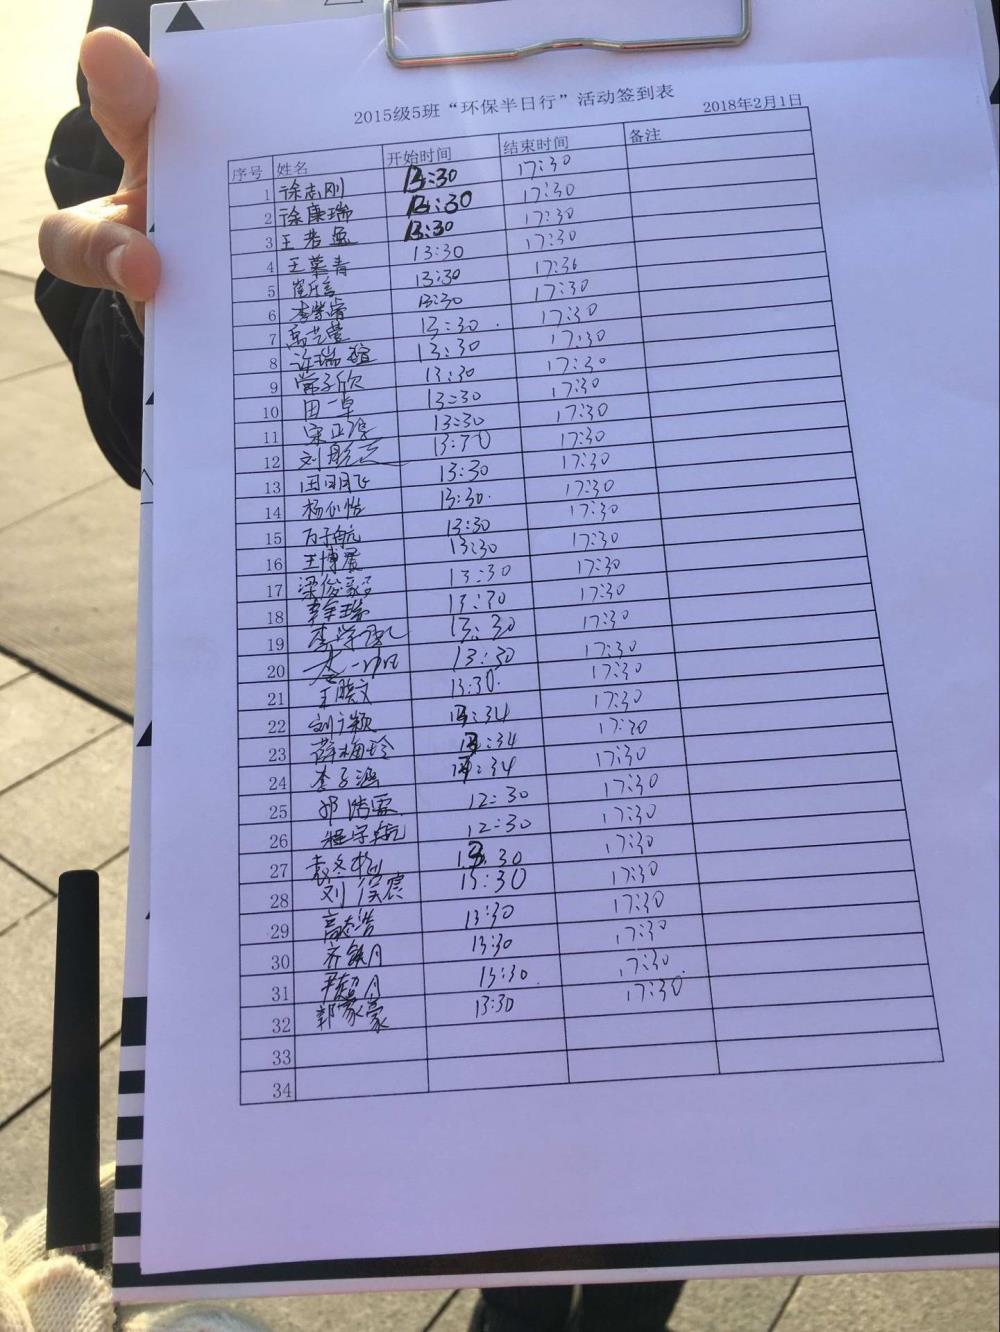 2015级5班“环保半日行”活动签到表
2018年2月1日
序号 姓名 开始时间 结束时间 备注
1 徐志刚 13:30 17:30
2 徐康瑞 13:30 17:30
3 王若 13:30 17:30
4 王慕青 13:30 17:30
5 13:30 17:30
6 李紫睿 13:30 17:30
7 13:30 17:30
8 许瑞 13:30 17:30
9 常子欣 13:30 17:30
10 田一卓 13:30 17:30
11 宋 13:30 17:30
12 刘 13:30 17:30
13 田 飞 13:30 17:30
14 杨 怡 13:30 17:30
15 万子航 13:30 17:30
16 王博晨 13:30 17:30
17 梁俊毅 13:30 17:30
18 13:30 17:30
19 李 13:30 17:30
20 13:30 17:30
21 王 文 13:30 17:30
22 刘 颖 13:34 17:30
23 薛梅玲 13:34 17:30
24 李子涵 13:34 17:30
25 12:30 17:30
26 程宇航 12:30 17:30
27 袁冬 13:30 17:30
28 刘 震 13:30 17:30
29 高 浩 13:30 17:30
30 齐 月 13:30 17:30
31 尹超月 13:30 17:30
32 郭家豪 13:30 17:30
33
34